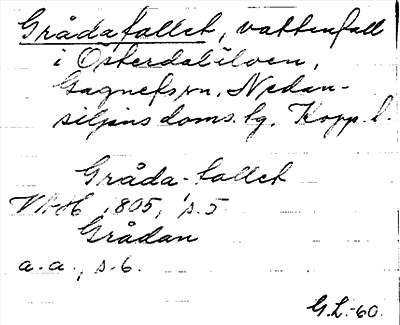 Grådafallet, vattenfall
i Österdalälven,
Gagnefs sn, Nedan-
siljans doms. hg, Kopp. l.
Gråda-fallet
1805, s. 5
Grådan
a.a., s. 6.
G.L.-60.